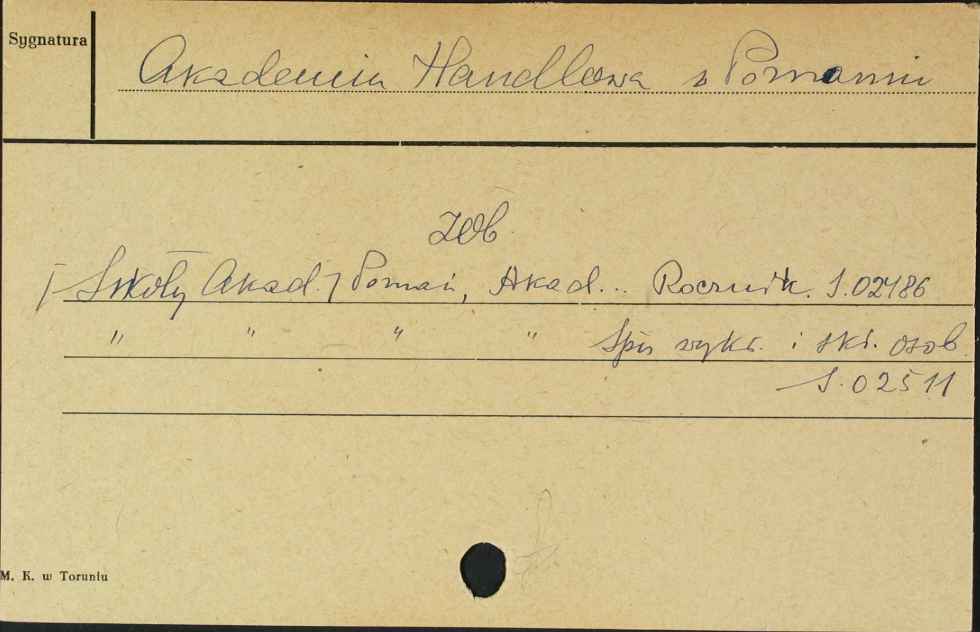 Sygnatura
Akademia Handlowa w Poznaniu
Zob.
[Szkoły Akad.] Poznań, Akad... Rocznik. S.02486
" " " " Spis wykł. i skł. osob.
S.02511
M. K. w Toruniu